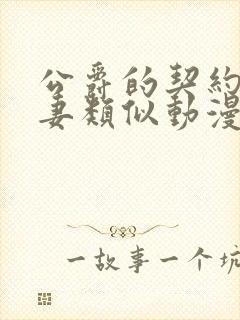 公爵的契約
妻類似動漫
一故事一个坑